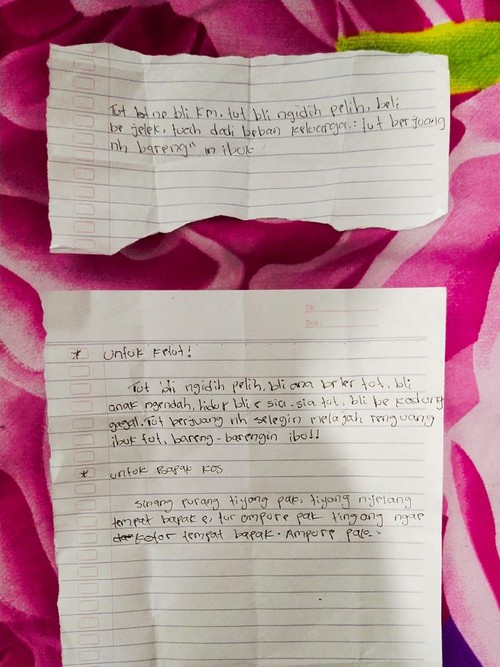 Tut bli ne bli Km, tut bli ngidih pelih, beli
be jelek, tuah dadi beban keluarga.: tut berjuang
nh bareng" in ibuk
No:
Date:
* Untuk Ketut!
Tut bli ngidih pelih, bli ana beler tut, bli
anak ngendah, hidup bli e sia-sia tut, bli be kadung
gagal. Tut berjuang nh selegin melajah
ibuk tut, bareng-barengin ibu!!
* untuk Bapak Kos
pak, tiyang
tempat bapak e, tur ampure pak
tempat bapak. Ampure pak.